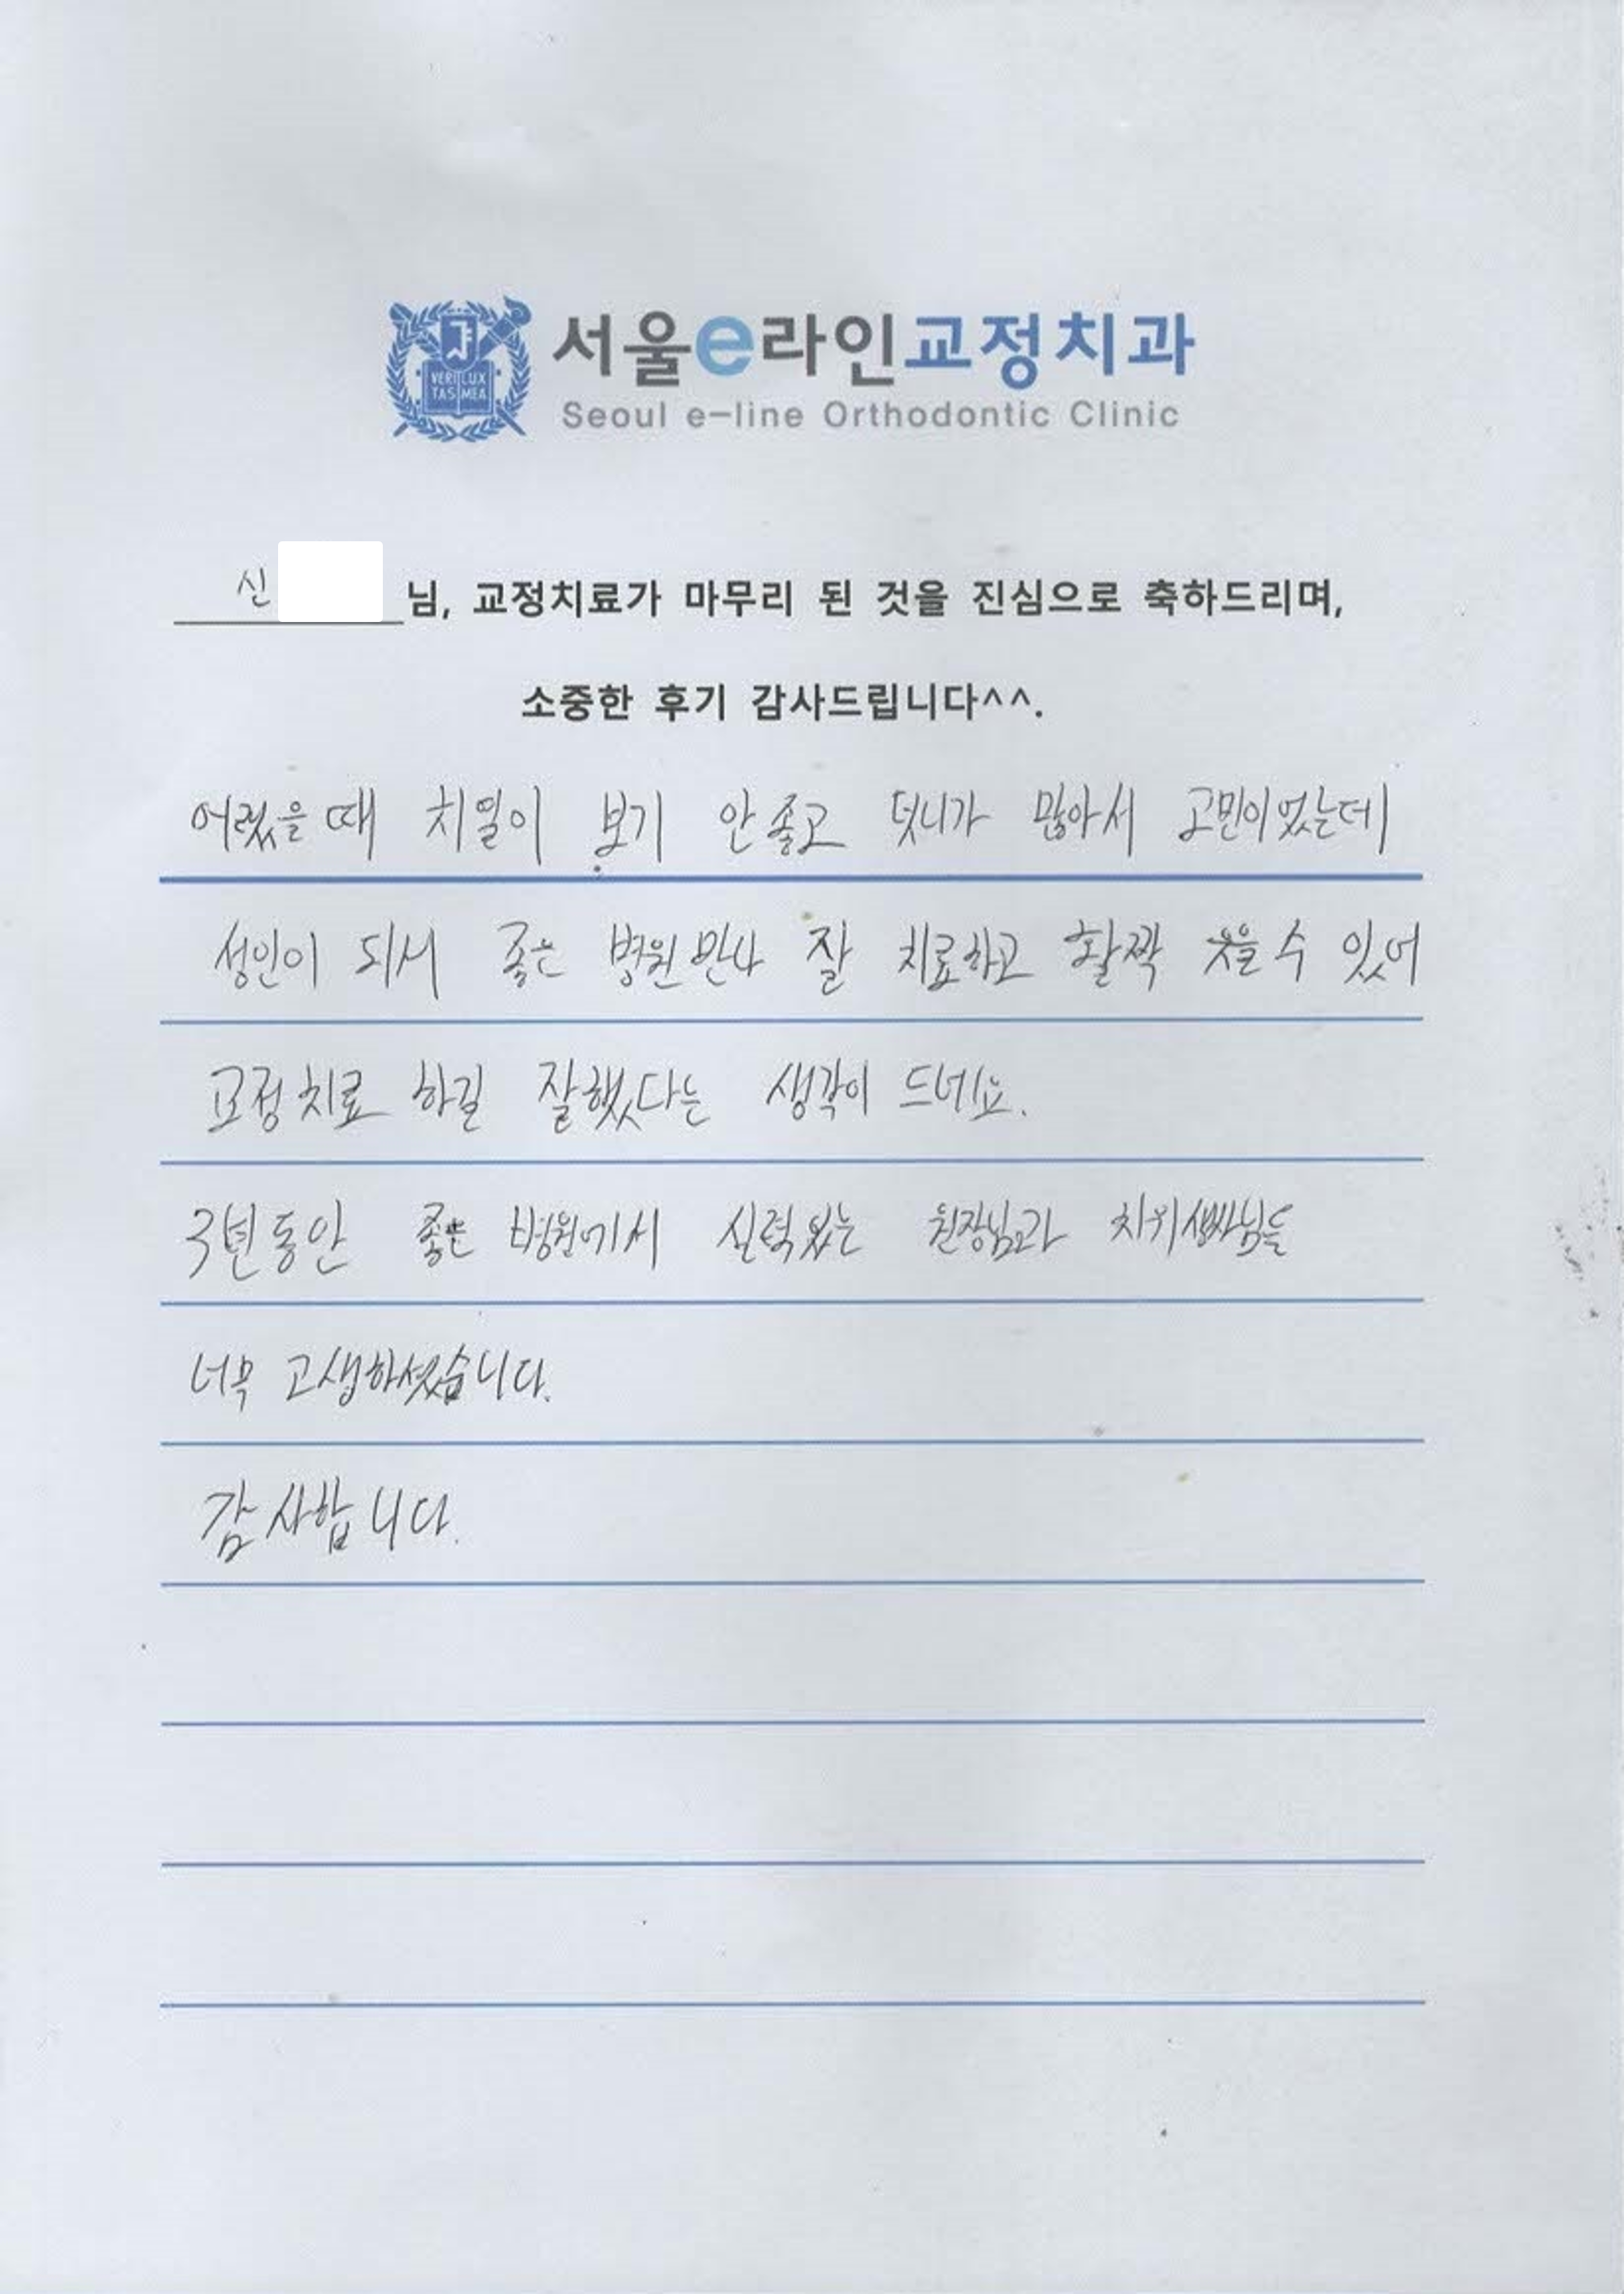 VERI LUX
TAS MEA
서울e라인교정치과
Seoul e-line Orthodontic Clinic
신 님, 교정치료가 마무리 된 것을 진심으로 축하드리며,
소중한 후기 감사드립니다^^.
어렸을 때 치열이 보기 안좋고 덧니가 많아서 고민이었는데
성인이 되서 좋은 병원만나 잘 치료하고 활짝 웃을 수 있어
교정치료 하길 잘했다는 생각이 드네요.
3년동안 좋은 병원에서 실력있는 원장님과 치위생사님들
너무 고생하셨습니다.
감사합니다.